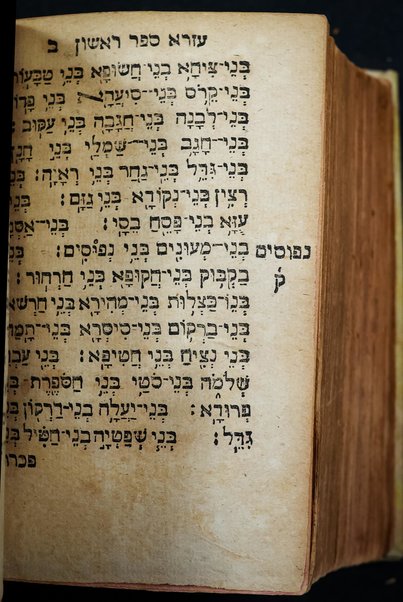 עזרא ספר ראשון ב
בְּנֵי־צִיחָ֥א בְנֵי־חֲשׂוּפָ֖א בְּנֵ֥י טַבָּעֽוֹת
בְּנֵי־קֵרֹ֥ס בְּנֵֽי־סִיעֲהָ֖א בְּנֵ֥י פָדֽוֹן
בְּנֵי־לְבָנָ֥ה בְנֵי־חֲגָבָ֖ה בְּנֵ֥י עַקּֽוּב׃
בְּנֵי־חָגָ֥ב בְּנֵי־שַׁמְלַ֖י בְּנֵ֥י חָנָֽן
בְּנֵי־גִדֵּ֥ל בְּנֵי־גַ֖חַר בְּנֵ֥י רְאָיָֽה׃ בְּנֵי
רְצִ֥ין בְּנֵי־נְקוֹדָ֖א בְּנֵ֥י גַזָּֽם׃ בְּנֵי
עֻזָּ֥א בְנֵי־פָסֵ֖חַ בְּנֵ֥י בֵסָֽי׃ בְּנֵי־אַסְנָ
בְנֵי־מְעוּנִ֖ים בְּנֵ֥י נְפוּסִֽים׃ נפוסים ק
בַקְבּ֥וּק בְּנֵי־חֲקוּפָ֖א בְּנֵ֥י חַרְחֽוּר׃
בְּנֵֽי־בַצְל֥וּת בְּנֵי־מְחִידָ֖א בְּנֵ֥י חַרְשָׁא
בְּנֵי־בַרְק֥וֹם בְּנֵֽי־סִיסְרָ֖א בְּנֵי־תָֽמַח
בְּנֵ֥י נְצִ֖יחַ בְּנֵ֥י חֲטִיפָֽא׃ בְּנֵ֖י עַבְדֵ
שְׁלֹמֹ֑ה בְּנֵי־סֹטַ֥י בְּנֵֽי הַסֹּפֶ֖רֶת בְּנֵ
פְרוּדָֽא׃ בְּנֵי־יַעְלָ֥ה בְנֵי־דַרְק֖וֹן בְּנֵ
גִדֵּֽל׃ בְּנֵ֧י שְׁפַטְיָ֣ה בְנֵי־חַטִּ֗יל בְּנֵ
פכרת